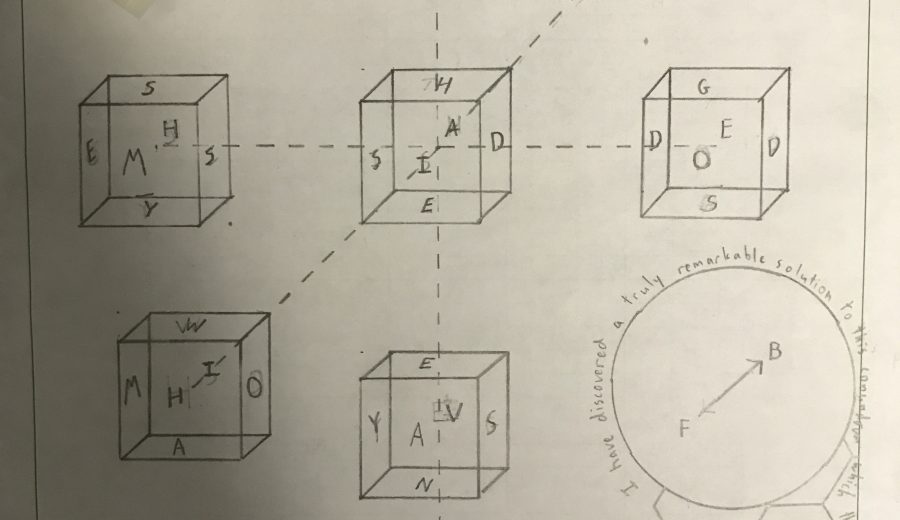 S
E M H S
Y
H
S I A D
E
G
D O E D
S
VW
M H I O
A
E
Y A V S
N
B
F
I have discovered a truly remarkable solution to this conundrum which